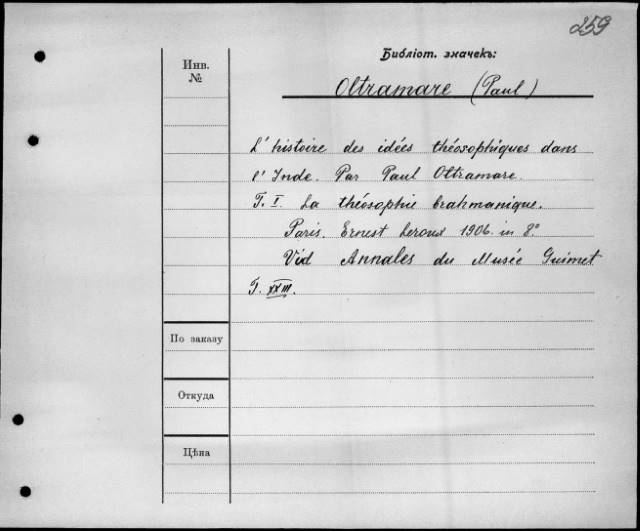 259
Библіот. значекъ:
Инв.
№
Oltramare (Paul)
L'histoire des idées théosophiques dans
l'Inde. Par Paul Oltramare.
T. I. La théosophie brahmanique.
Paris. Ernest Leroux 1906. in 8°
Vid Annales du Musée Guimet
T. XXIII.
По заказу
Откуда
Цѣна